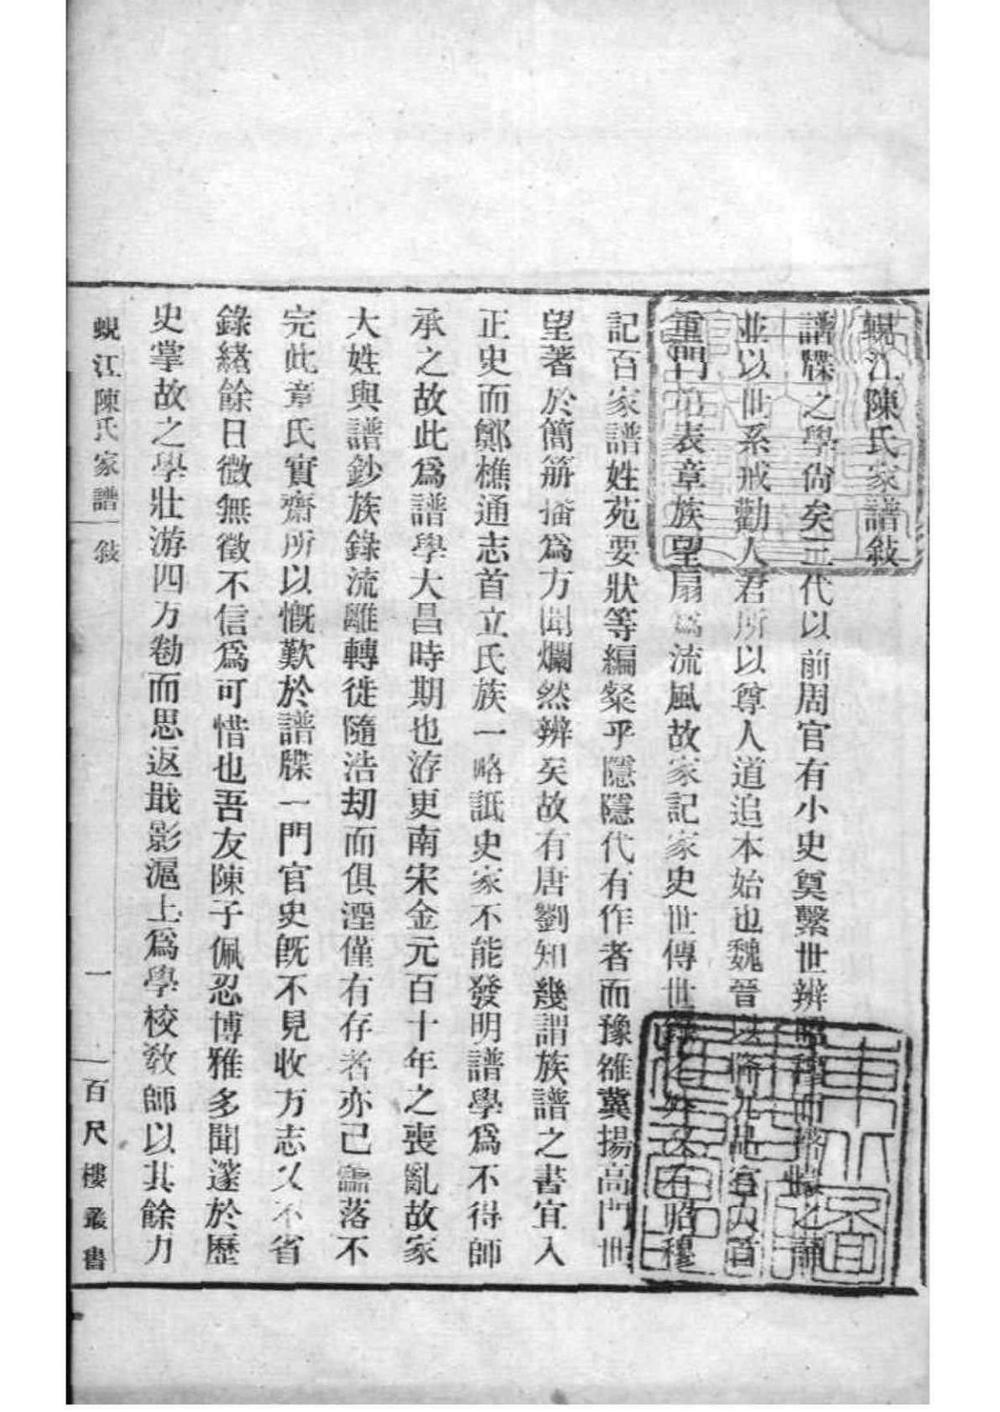 蜆江陳氏家譜敍
譜牒之學尙矣三代以前周官有小史奠繫世辨昭穆而瞽矇之誦
並以世系戒勸人君所以尊人道追本始也魏晉以降九品官人首
重門第表章族望扇爲流風故家記家史世傳世錄之外又有昭穆
記百家譜姓苑要狀等編粲乎隱隱代有作者而豫雒冀揚高門世
望著於簡册播爲方聞爛然辨矣故有唐劉知幾謂族譜之書宜入
正史而鄭樵通志首立氏族一略詆史家不能發明譜學爲不得師
承之故此爲譜學大昌時期也洊更南宋金元百十年之喪亂故家
大姓與譜鈔族錄流離轉徙隨浩刧而俱湮僅有存者亦已零落不
完此章氏實齋所以慨歎於譜牒一門官史旣不見收方志又不省
錄緖餘日微無徵不信爲可惜也吾友陳子佩忍博雅多聞邃於歷
史掌故之學壯游四方勌而思返戢影滬上爲學校敎師以其餘力
蜆江陳氏家譜 敍 一 百尺樓叢書